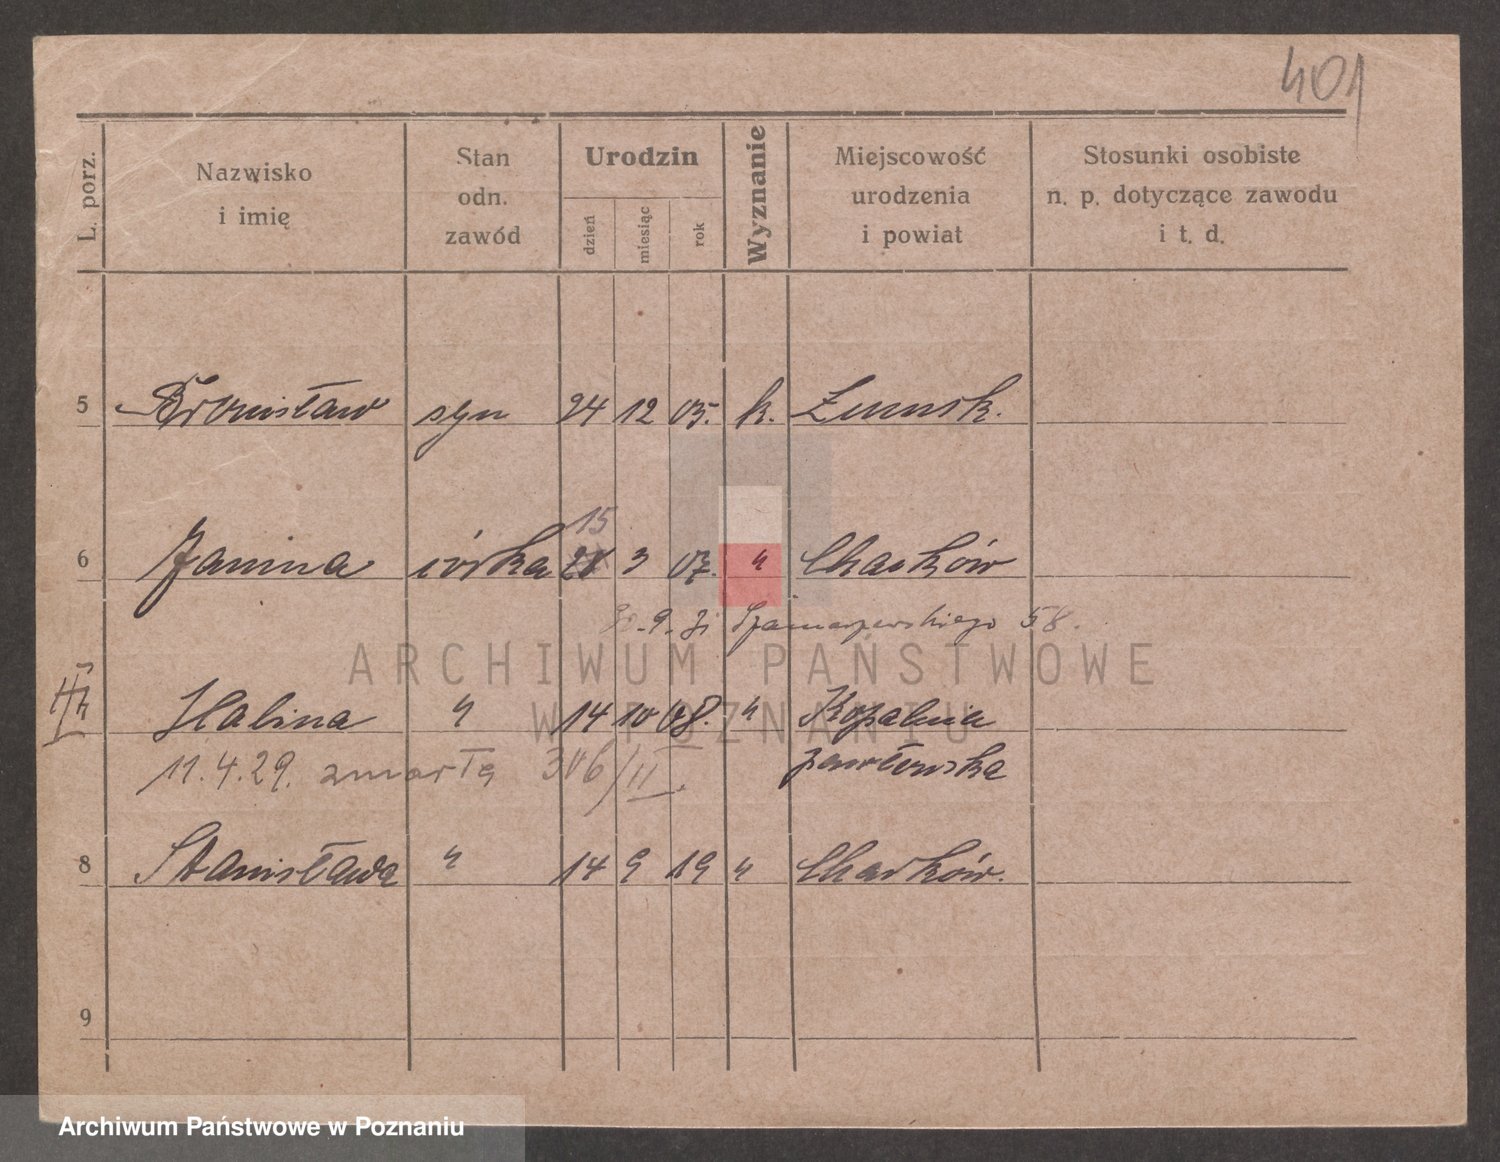 401
L. porz.
Nazwisko
i imię
Stan
odn.
zawód
Urodzin
dzień
miesiąc
rok
Wyznanie
Miejscowość
urodzenia
i powiat
Stosunki osobiste
n. p. dotyczące zawodu
i t. d.
5 Bronisław syn 24 12 05. k.
15
6 Janina córka 3 07. " Charków
9. 31 Szamarzewskiego 58.
Halina " 14 10 08. " Kopalnia
11.4.29. zmarła 306/II. pawłowska
8 Stanisława " 14 9 19 " Charków.
9
ARCHIWUM PAŃSTWOWE
W POZNANIU
Archiwum Państwowe w Poznaniu